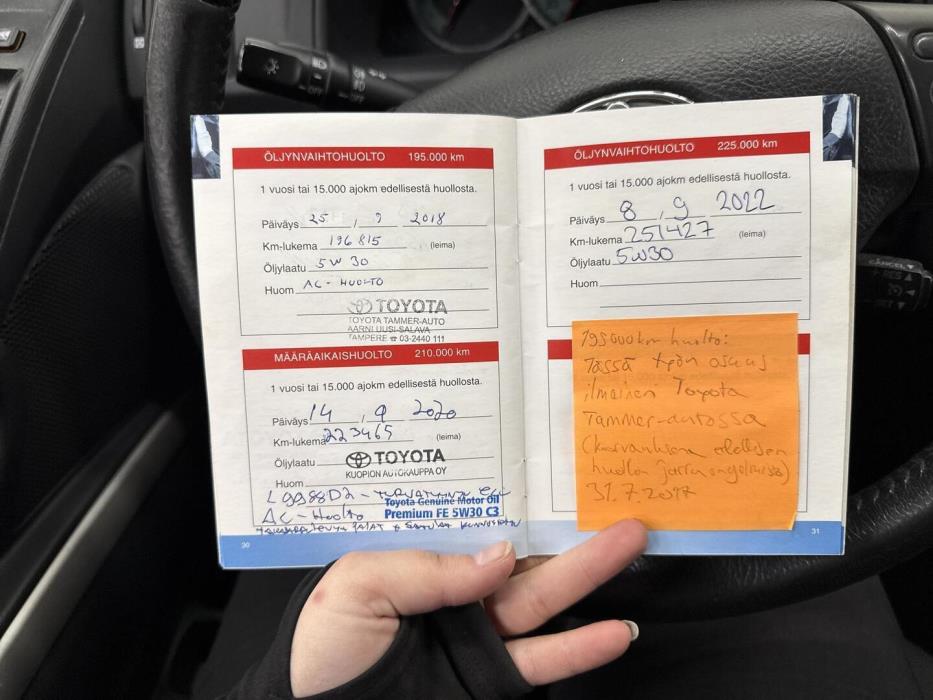 ÖLJYNVAIHTOHUOLTO 195.000 km
1 vuosi tai 15.000 ajokm edellisestä huollosta.
Päiväys 25 / 9 2018
Km-lukema 196815 (leima)
Öljylaatu 5W 30
Huom AC-HUOLTO
TOYOTA
TOYOTA TAMMER-AUTO
AARNI UUSI-SALAVA
TAMPERE ☎ 03-2440 111
MÄÄRÄAIKAISHUOLTO 210.000 km
1 vuosi tai 15.000 ajokm edellisestä huollosta.
Päiväys 14 / 9 2020
Km-lukema 223465 (leima)
Öljylaatu
TOYOTA
KUOPION AUTOKAUPPA OY
Huom
Toyota Genuine Motor Oil
AC-Huolto
Premium FE 5W30 C3
30
ÖLJYNVAIHTOHUOLTO 225.000 km
1 vuosi tai 15.000 ajokm edellisestä huollosta.
Päiväys 8 / 9 2022
Km-lukema 251427 (leima)
Öljylaatu 5W30
Huom
195000km huolto:
Tässä työn osuus
ilmainen Toyota
Tammer-autossa
(korvauksena edellisen
huollon jarruongelmista)
31.7.2017
31
CANCEL
OFF